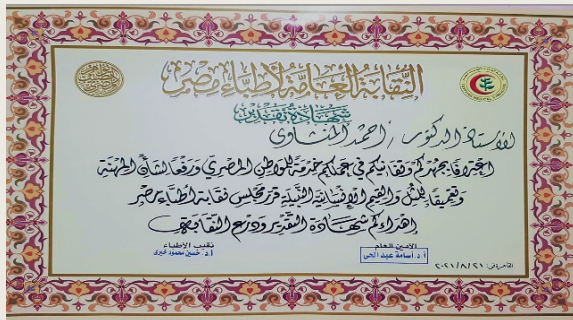 النقابة العامة لأطباء مصر
شهادة تقدير
الأستاذ الدكتور / أحمد المنشاوى
اعترافًا بجهدكم وتفانيكم في عملكم خدمة للوطن المصري ورفعًا لشأن المهنة
وتعميقًا للمثل والقيم الإنسانية النبيلة قرر مجلس نقابة أطباء مصر
إهداءكم شهادة التقدير ودرع النقابة
الأمين العام
أ.د. أسامة عبد الحي
نقيب الأطباء
أ.د. حسين محمود خيرى
القاهرة في: ٢٠٢١/٨/٢١